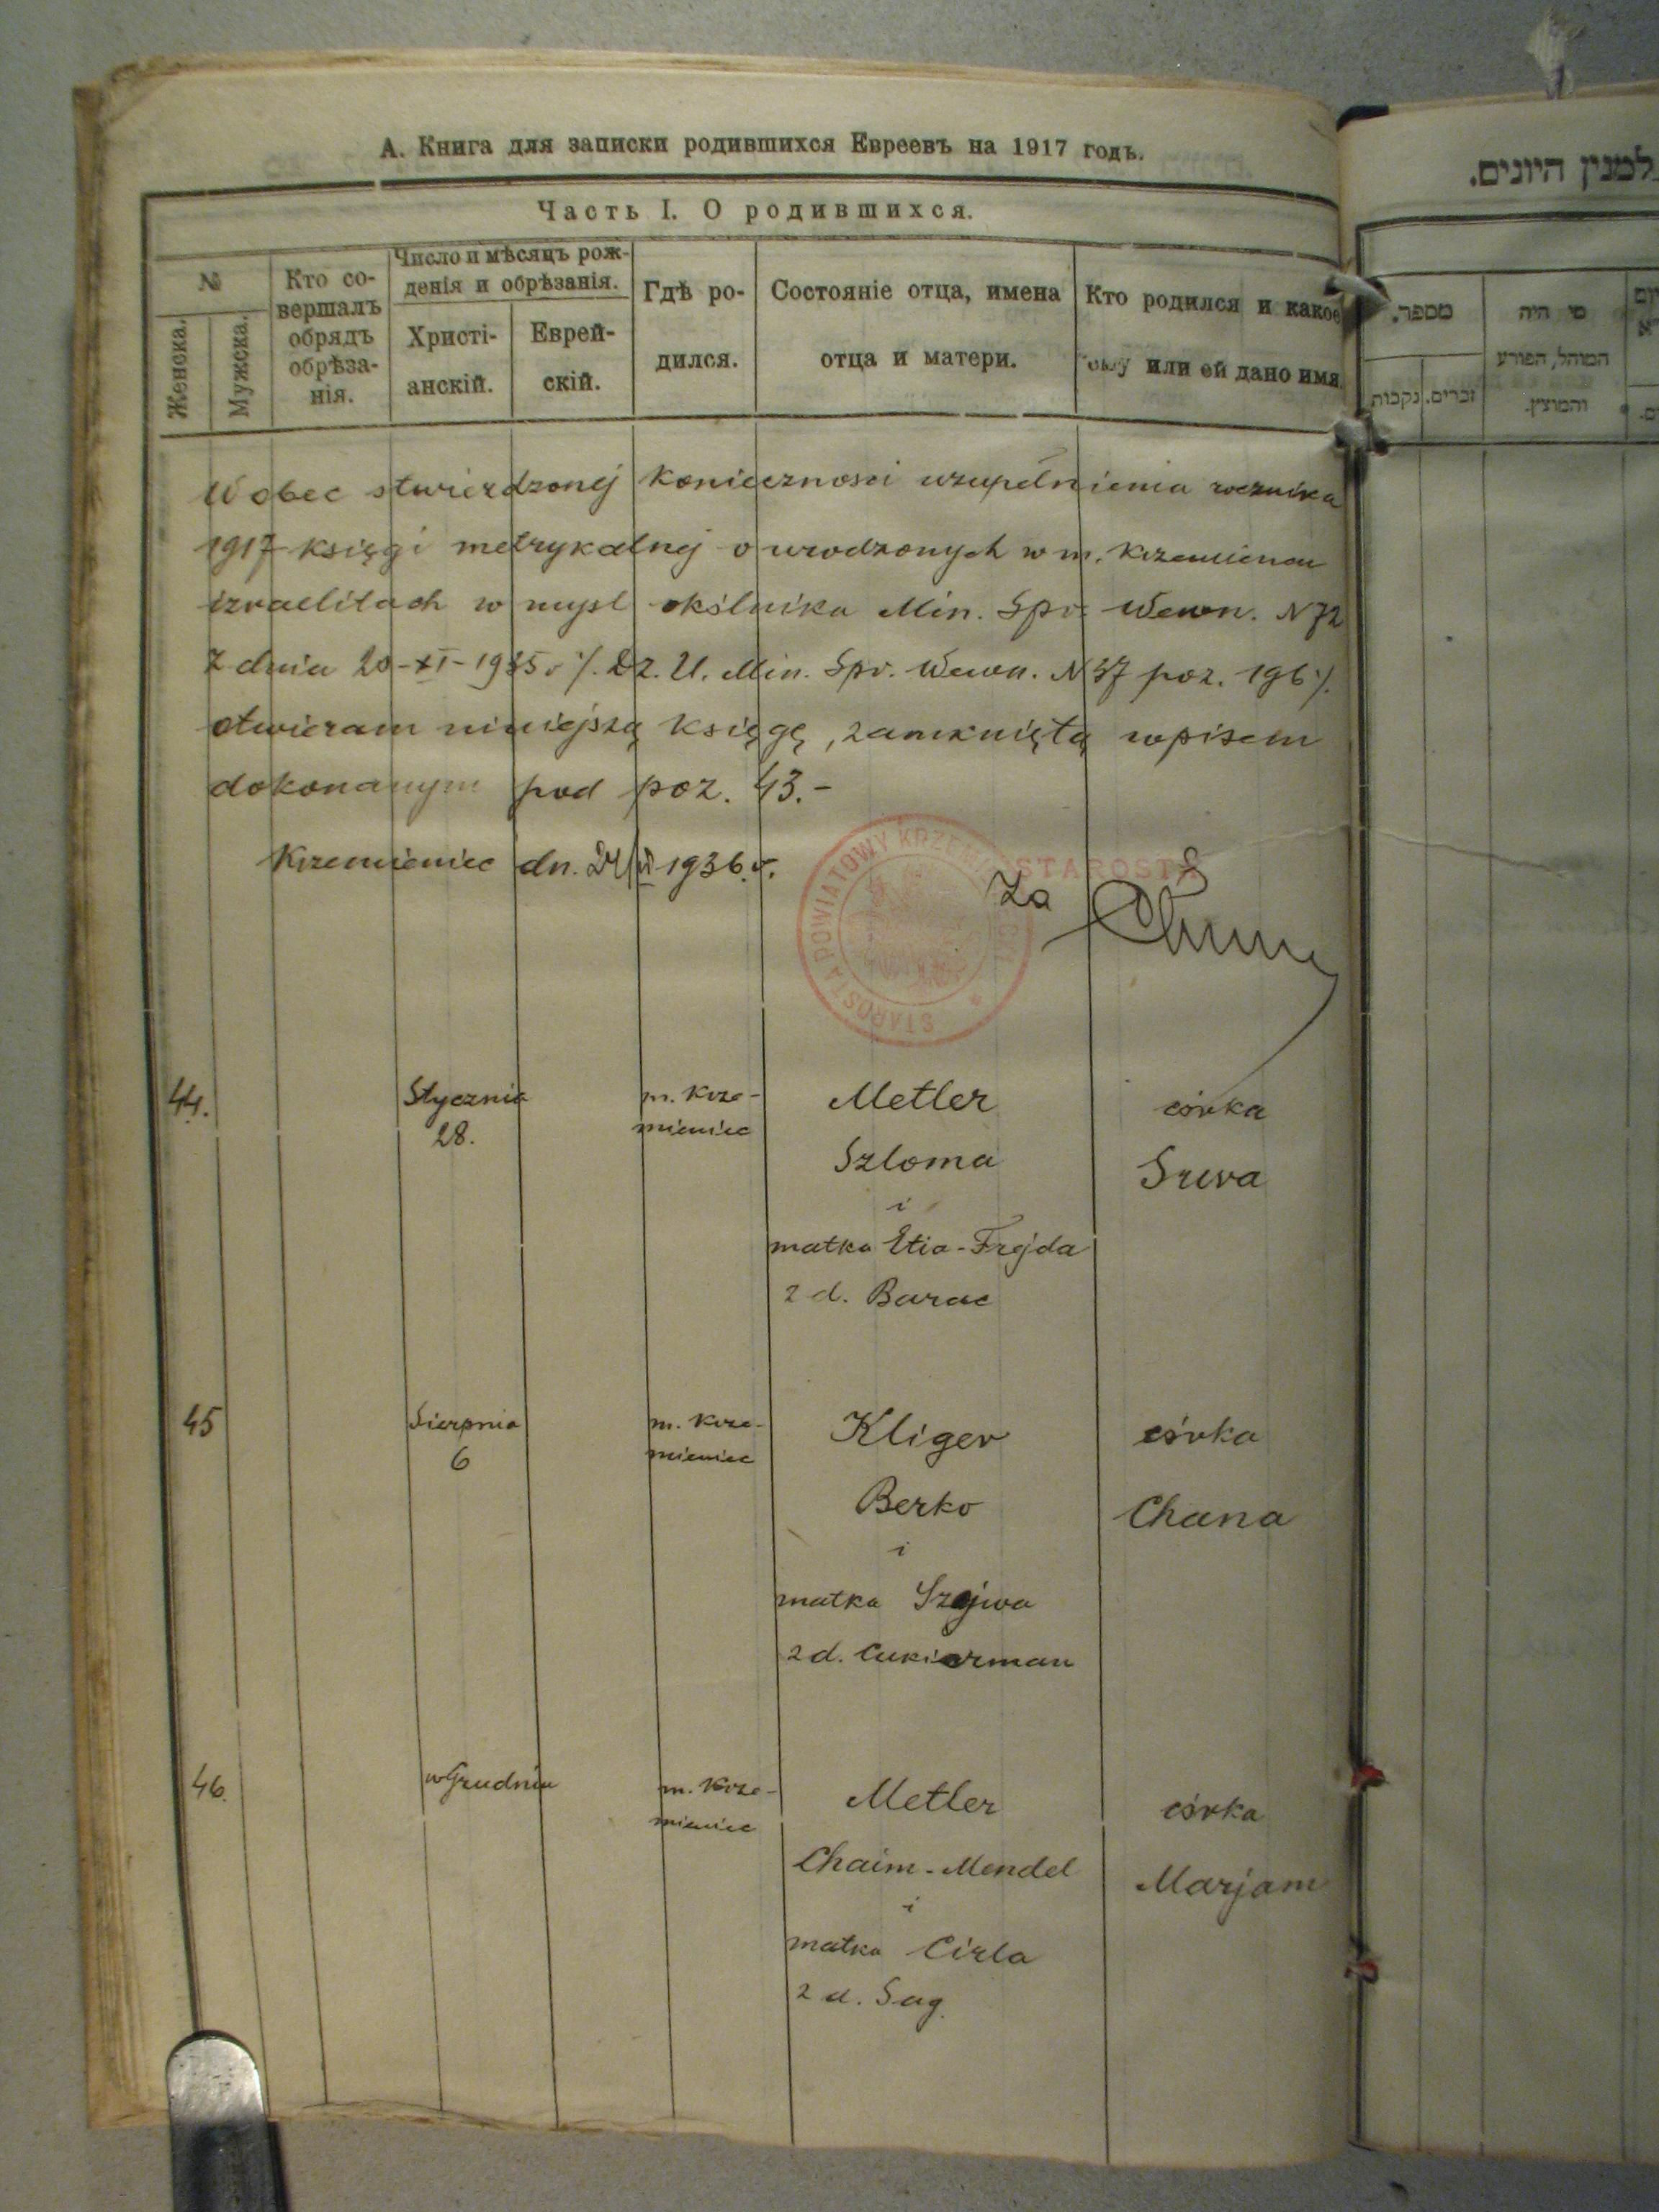 А. Книга для записки родившихся Евреевъ на 1917 годъ.
Часть I. О родившихся.
№
Женска.
Мужска.
Кто со-
вершалъ
обрядъ
обрѣза-
нія.
Число и мѣсяцъ рож-
денія и обрѣзанія.
Христі-
анскій.
Еврей-
скій.
Гдѣ ро-
дился.
Состояніе отца, имена
отца и матери.
Кто родился и какое
ему или ей дано имя.
Wobec stwierdzonej konieczności uzupełnienia rocznika
1917 księgi metrykalnej o urodzonych w m. Krzemieńcu
izraelitach w myśl okólnika Min. Spr. Wewn. N 72
z dnia 20-XI-1935 r /. Dz. U. Min. Spr. Wewn. N 37 poz. 196 /.
otwieram niniejszą księgę, zamkniętą wpisem
dokonanym pod poz. 43.-
Krzemieniec dn. 1936 r.
STAROSTA POWIATOWY
STAROSTA
Za
44.
Stycznia
28.
m. Krze-
mieniec
Metler
Szloma
i
matka Etia-Frejda
z d. Barac
córka
Surva
45
Sierpnia
6
m. Krze-
mieniec
Kliger
Berko
i
matka Szejwa
z d. Cukierman
córka
Chana
46.
w Grudniu
m. Krze-
mieniec
Metler
Chaim-Mendel
i
matka Cirla
z d. Sag
córka
Marjam
למנין היונים.
מספר.
נקבות
זכרים.
מי היה
המוהל, הפורע
והמוצץ.